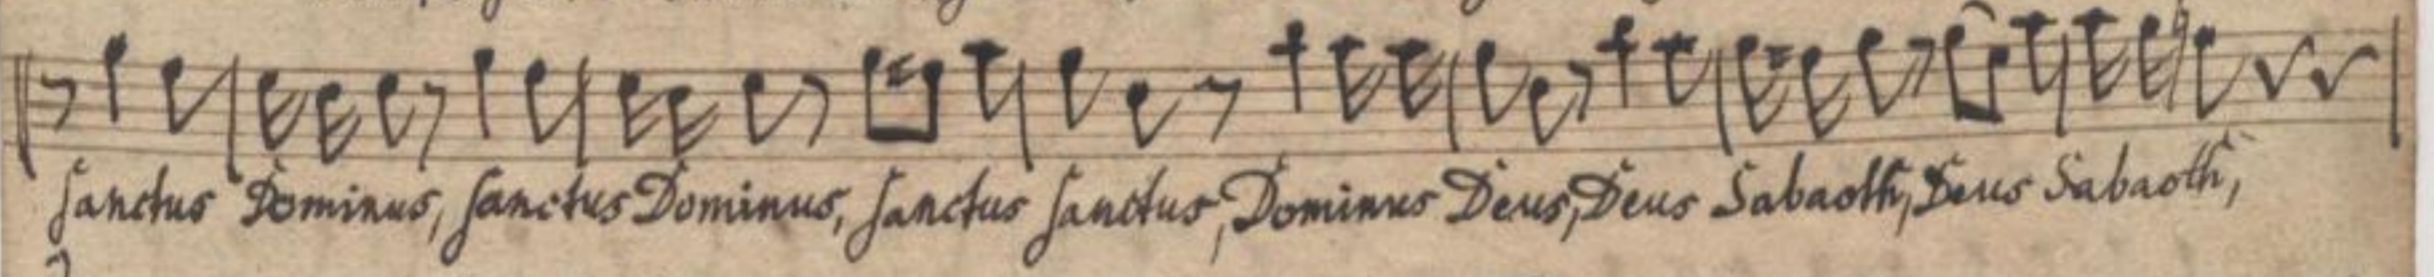 Sanctus Dominus, Sanctus Dominus, Sanctus Sanctus, Dominus Deus, Deus Sabaoth, Deus Sabaoth,